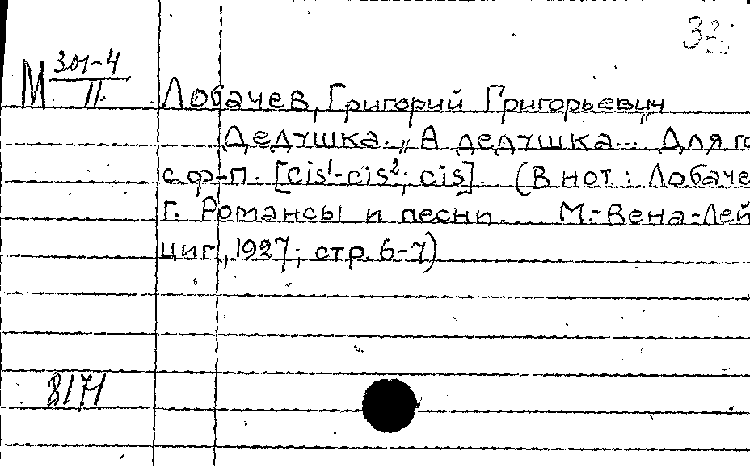 33
М 301-4
II
Лобачев, Григорий Григорьевич
Дедушка. „А дедушка... Для го
с ф-п. [cis¹-cis²; cis]. (В нот: Лобаче
Г. Романсы и песни... М.-Вена-Лей
циг, 1927; стр. 6-7)
8171